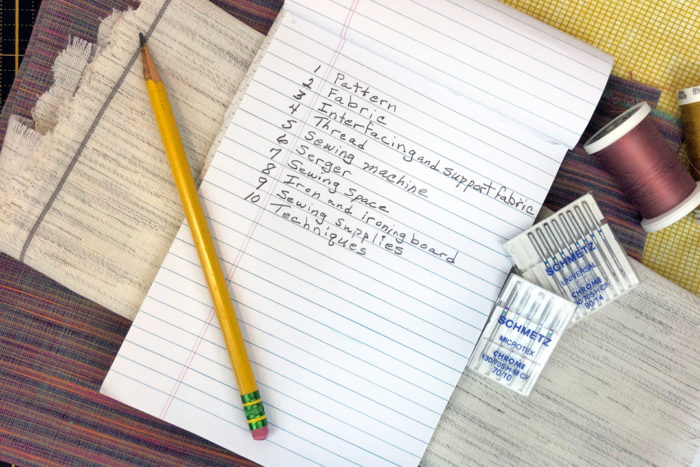 1 Pattern
2 Fabric
3 Interfacing and support fabric
4 Thread
5 Sewing machine
6 Serger
7 Sewing space
8 Iron and ironing board
9 Sewing supplies
10 Techniques
SCHMETZ
UNIVERSAL
CHROME
90/14
SCHMETZ
MICROTEX
CHROME
130/705 H-M CF
70/10